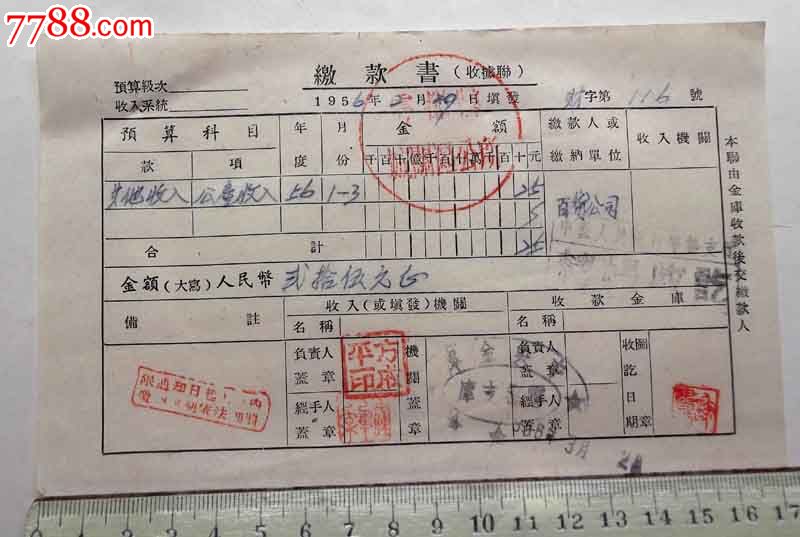 7788.com
繳款書(收據聯)
預算級次
收入系統
1956年2月29日填發
財字第116號
預算科目 年度 月份 金額 繳款人或繳納單位 收入機關
款 項 千百十億千百十萬千百十元
其他收入 公產收入 56 1-3 25 百货公司
5
合計 25
金額(大寫)人民幣 贰拾伍元正
備註 收入(或填發)機關 收款金庫
名稱 名稱
負責人蓋章 機關蓋章 負責人蓋章 收圖訖日期章
經手人蓋章 經手人蓋章
本聯由金庫收款後交繳款人
0 1 2 3 4 5 6 7 8 9 10 11 12 13 14 15 16 17